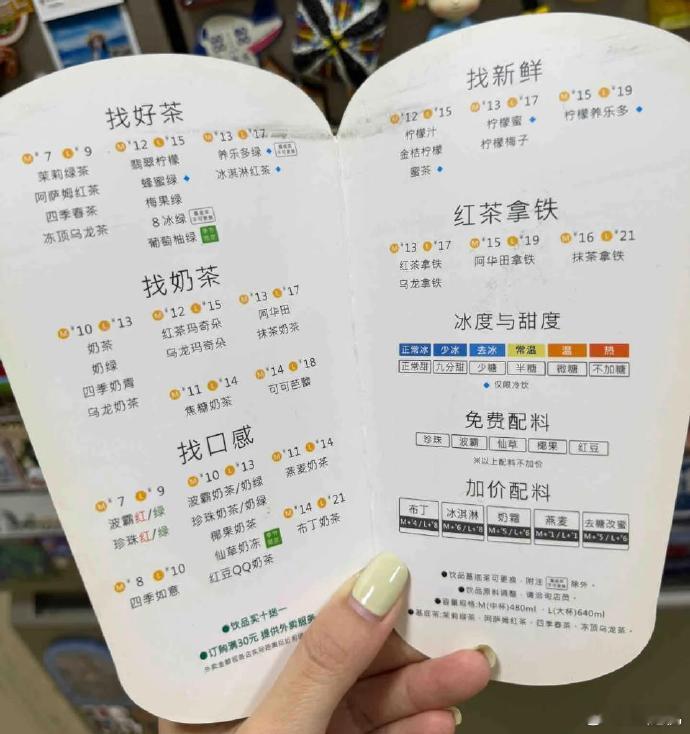 找好茶
M ¥7 L ¥9
茉莉绿茶
阿萨姆红茶
四季春茶
冻顶乌龙茶
M ¥12 L ¥15
翡翠柠檬
蜂蜜绿
梅果绿
8冰绿 基底茶不可更换
葡萄柚绿 季节限定
M ¥13 L ¥17
养乐多绿 基底茶不可更换
冰淇淋红茶
找奶茶
M ¥10 L ¥13
奶茶
奶绿
四季奶青
乌龙奶茶
M ¥12 L ¥15
红茶玛奇朵
乌龙玛奇朵
M ¥13 L ¥17
阿华田
抹茶奶茶
M ¥11 L ¥14
焦糖奶茶
M ¥14 L ¥18
可可芭蕾
找口感
M ¥7 L ¥9
波霸红/绿
珍珠红/绿
M ¥8 L ¥10
四季如意
M ¥10 L ¥13
波霸奶茶/奶绿
珍珠奶茶/奶绿
椰果奶茶
仙草奶冻 季节限定
红豆QQ奶茶
M ¥11 L ¥14
燕麦奶茶
M ¥14 L ¥21
布丁奶茶
●饮品买十送一
●订购满30元 提供外卖服务
找新鲜
M ¥12 L ¥15
柠檬汁
金桔柠檬
蜜茶
M ¥13 L ¥17
柠檬蜜
柠檬梅子
M ¥15 L ¥19
柠檬养乐多
红茶拿铁
M ¥13 L ¥17
红茶拿铁
乌龙拿铁
M ¥15 L ¥19
阿华田拿铁
M ¥16 L ¥21
抹茶拿铁
冰度与甜度
正常冰 少冰 去冰 常温 温 热
正常甜 九分甜 少糖 半糖 微糖 不加糖
仅限冷饮
免费配料
珍珠 波霸 仙草 椰果 红豆
※以上配料不加价
加价配料
布丁 冰淇淋 奶霜 燕麦 去糖改蜜
M+¥4/L+¥8 M+¥6/L+¥8 M+¥5/L+¥6 M+¥1/L+¥1 M+¥5/L+¥6
●饮品基底茶可更换，附注 基底茶不可更换 除外。
●饮品原料调整，请洽询店员。
●容量规格:M(中杯)480ml · L(大杯)640ml
●基底茶:茉莉绿茶·阿萨姆红茶·四季春茶·冻顶乌龙茶。